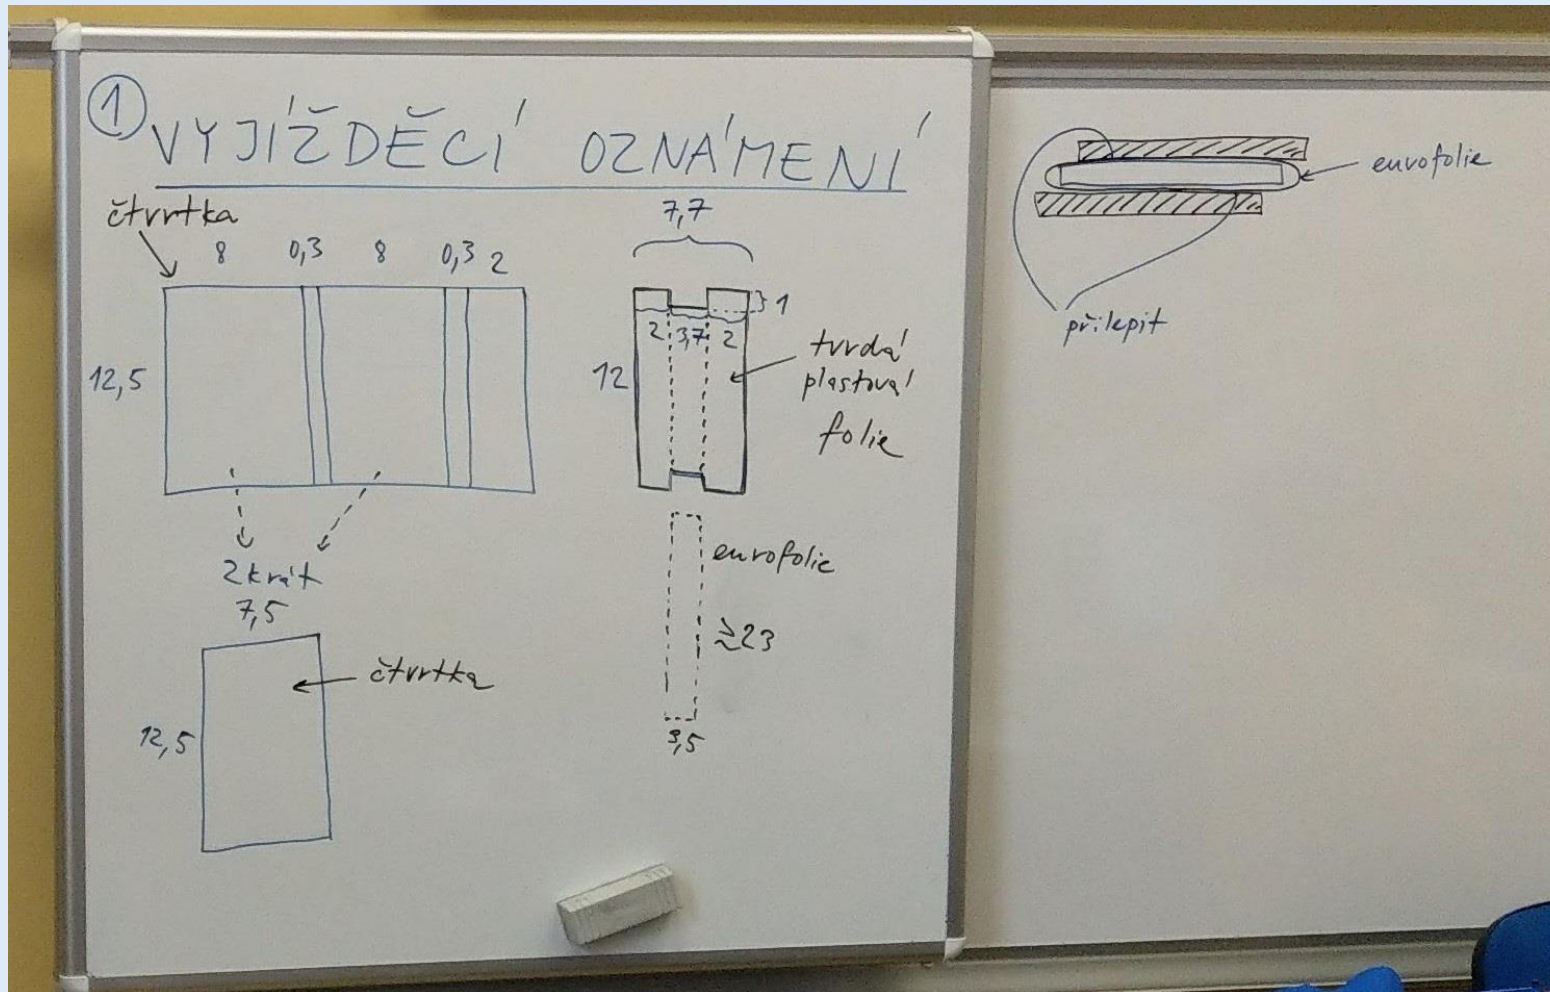 1
VYJÍŽDĚCÍ OZNÁMENÍ
čtvrtka
8 0,3 8 0,3 2
12,5
2krát
7,5
čtvrtka
12,5
7,7
1
2 3,7 2
12
tvrdá
plastová
folie
eurofolie
≥23
3,5
eurofolie
přilepit